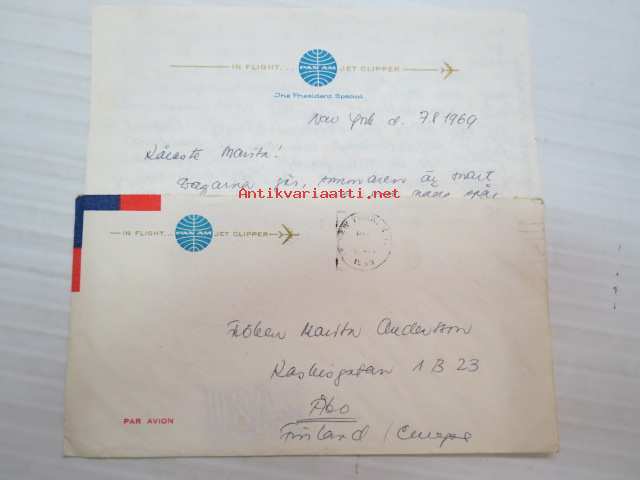 IN FLIGHT... PAN AM JET CLIPPER
The President Special
New York d. 7.8 1969
Käraste Marita!
Dagarna går, sommaren är snart
Antikvariaatti.net
IN FLIGHT... PAN AM JET CLIPPER
Fröken Marita Andersson
Kaskisgatan 1 B 23
Åbo
PAR AVION
Finland / Europe